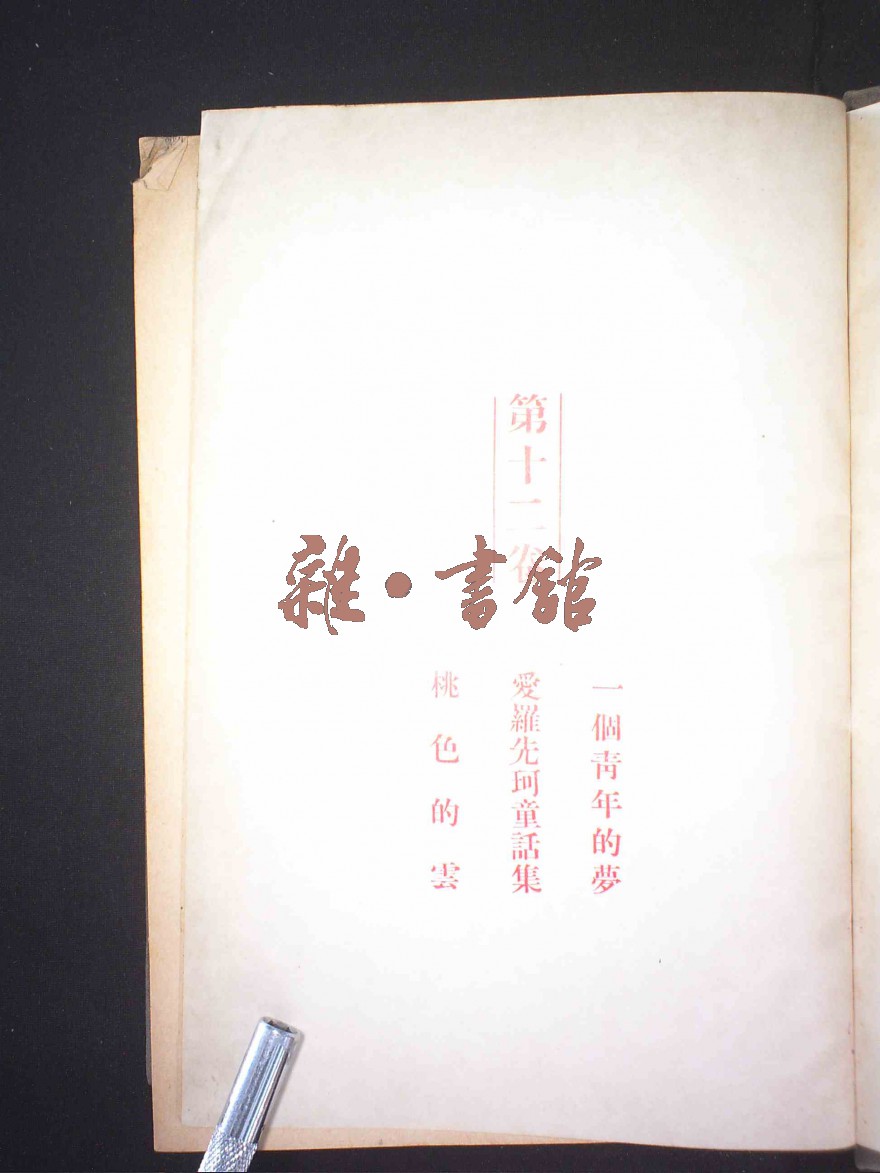 第十二卷
一個靑年的夢
愛羅先珂童話集
桃色的雲
雜·書館